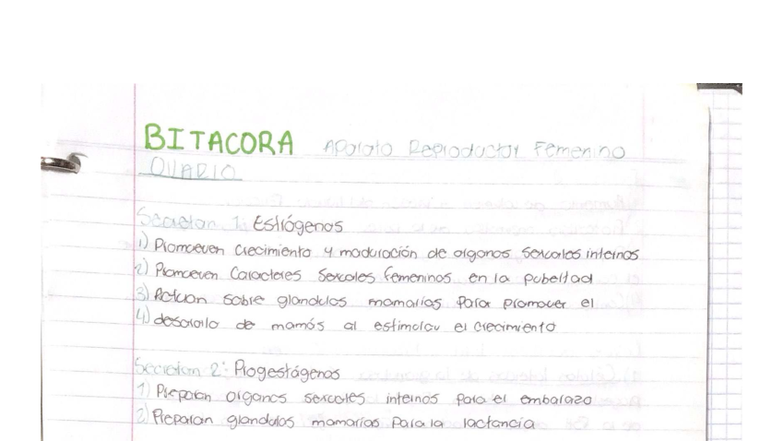 BITACORA Aparato Reproductor Femenino
OVARIO
Secrecion 1: Estrógenos
1) Promueven crecimiento y maduración de organos sexcoles internos
2) Promueven Caracteres Sexcoles femeninos en la pubertad
3) Actuan sobre glandulas mamarias para promover el
4) desarollo de mamás al estimular el crecimiento
Secrecion 2: Progestágenos
1) Preparan organos sexcoles internos para el embarazo
2) Preparan glandulas mamarias para la lactancia